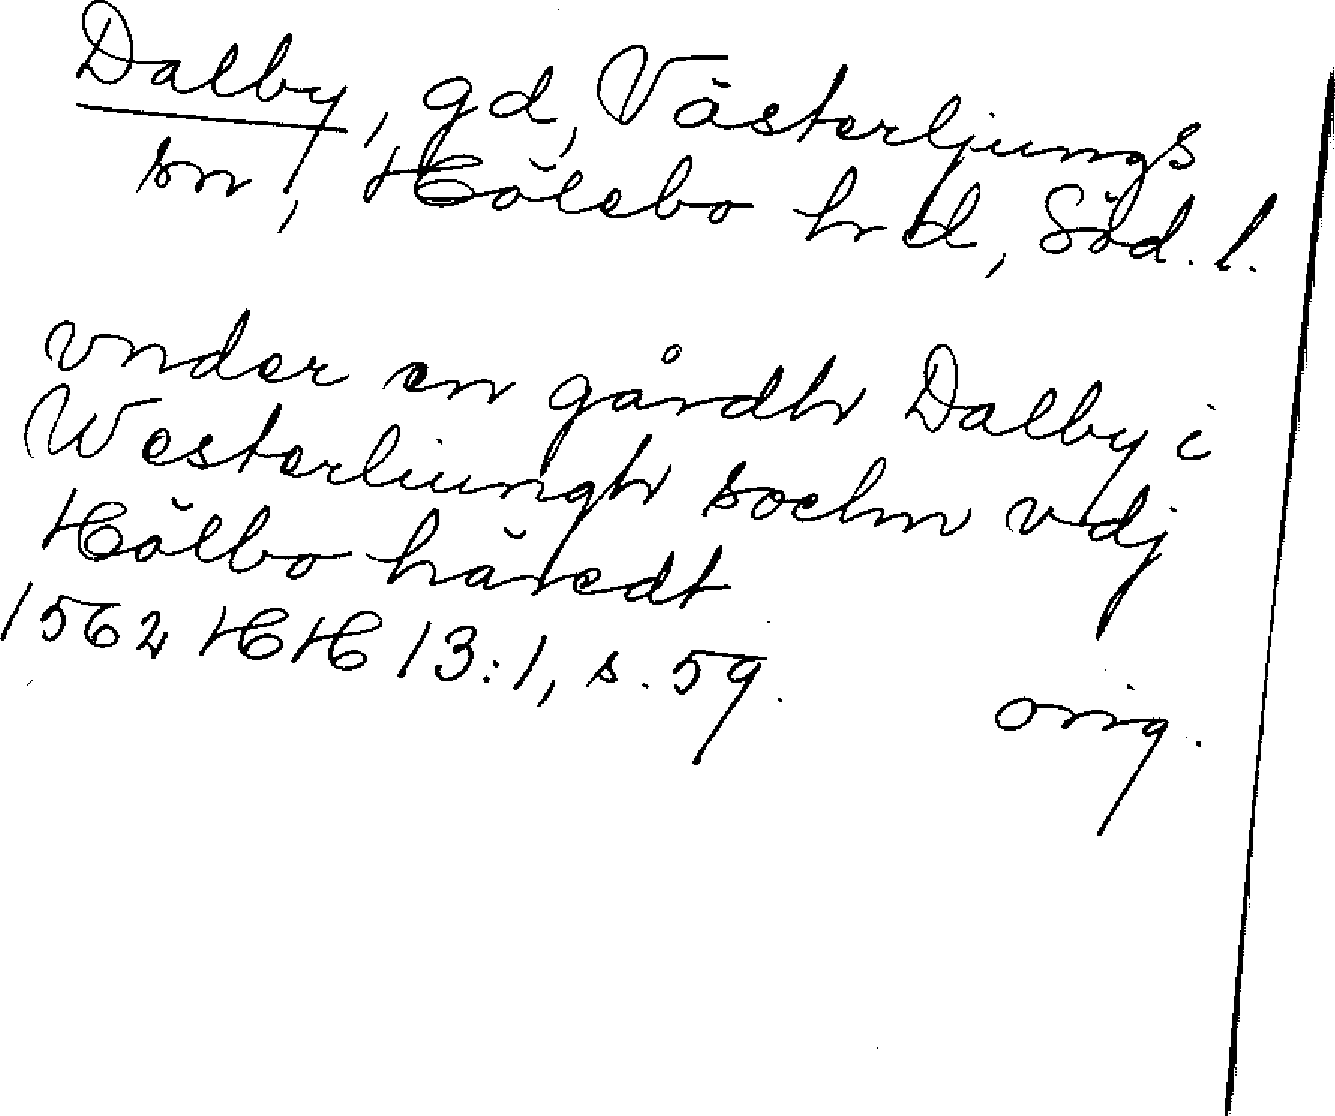 Dalby, gd, Västerljungs
sn, Hölebo hd, Söd. l.
vnder en gårdh Dalby i
Westerliungh sochn vdj
Hölbo häredt
1562 HH 13:1, s. 59.
orig.